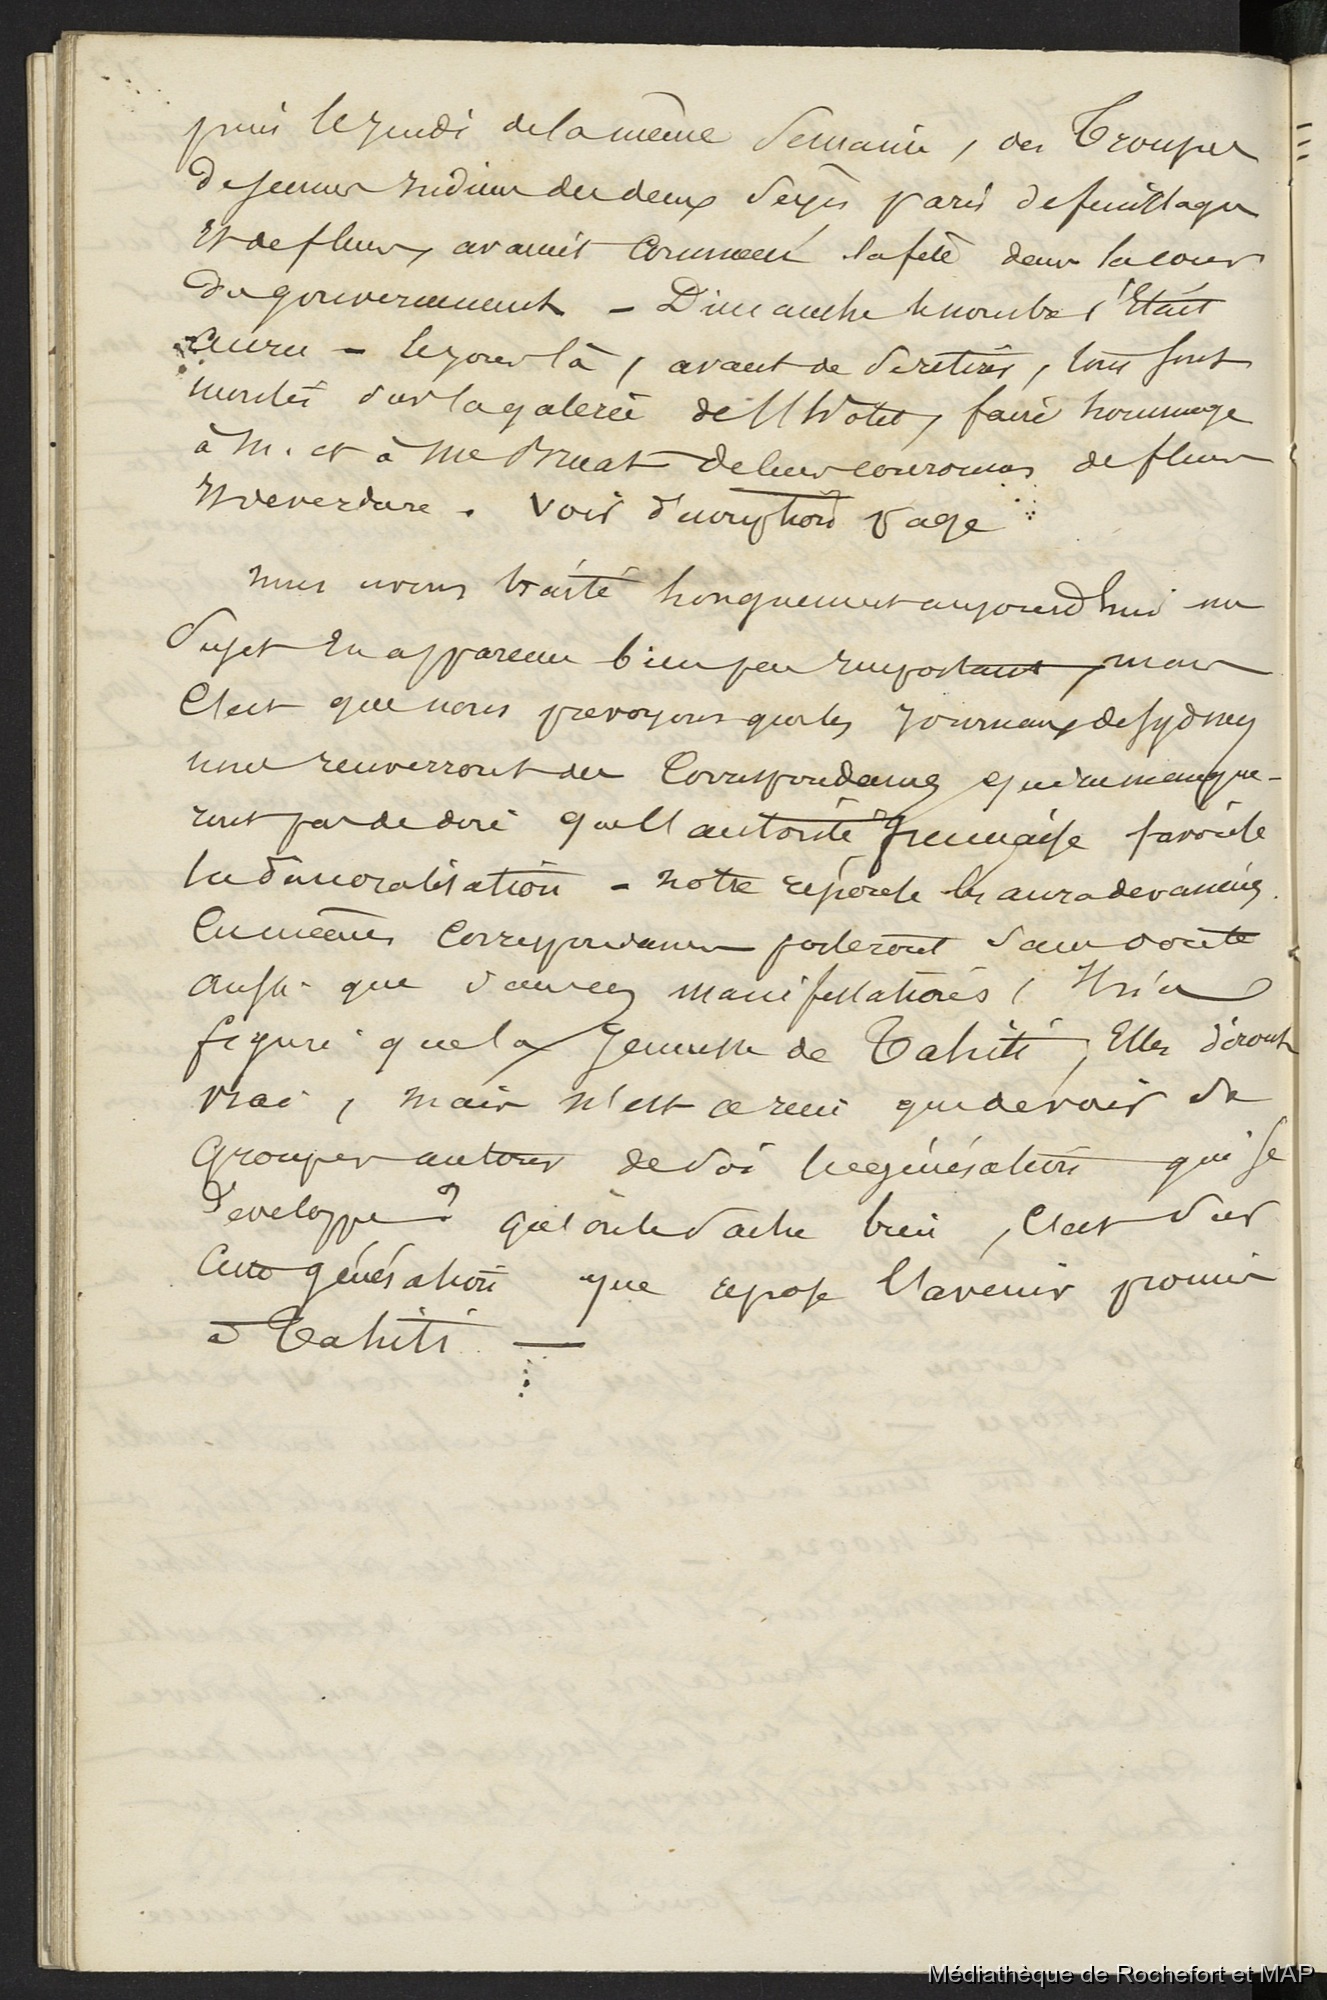 puis le jeudi de la même semaine, des Troupes
de jeunes indiens des deux sexes parés de feuillages
et de fleurs, avaient commencé la fête dans la cour
du gouvernement - Dimanche le nombre s'était
accru - le jour là, avant de se retirer, tous sont
montés sur la galerie de l'hôtel, faire hommage
à M. et à Me Bruat de leurs couronnes de fleurs
et de verdure. Voir page
nous avons traité longuement aujourd'hui un
sujet en apparence bien peu important, mais
C'est que nous prevoyons que les journaux de Sydney
nous renverront des Correspondances qui ne manque-
ront pas de dire que l'autorité française favorise
la démoralisation - notre réponse les aura devancées.
Ces mêmes Correspondances parleront sans doute
aussi que dans ces manifestations, Il n'a
figuré que la jeunesse de Tahiti, Elles diront
vrai, mais n'est ce rien que de voir se
Grouper autour de soi la génération qui se
développe? qu'on le sache bien, C'est sur
Cette génération que repose l'avenir promis
à Tahiti —
Médiathèque de Rochefort et MAP